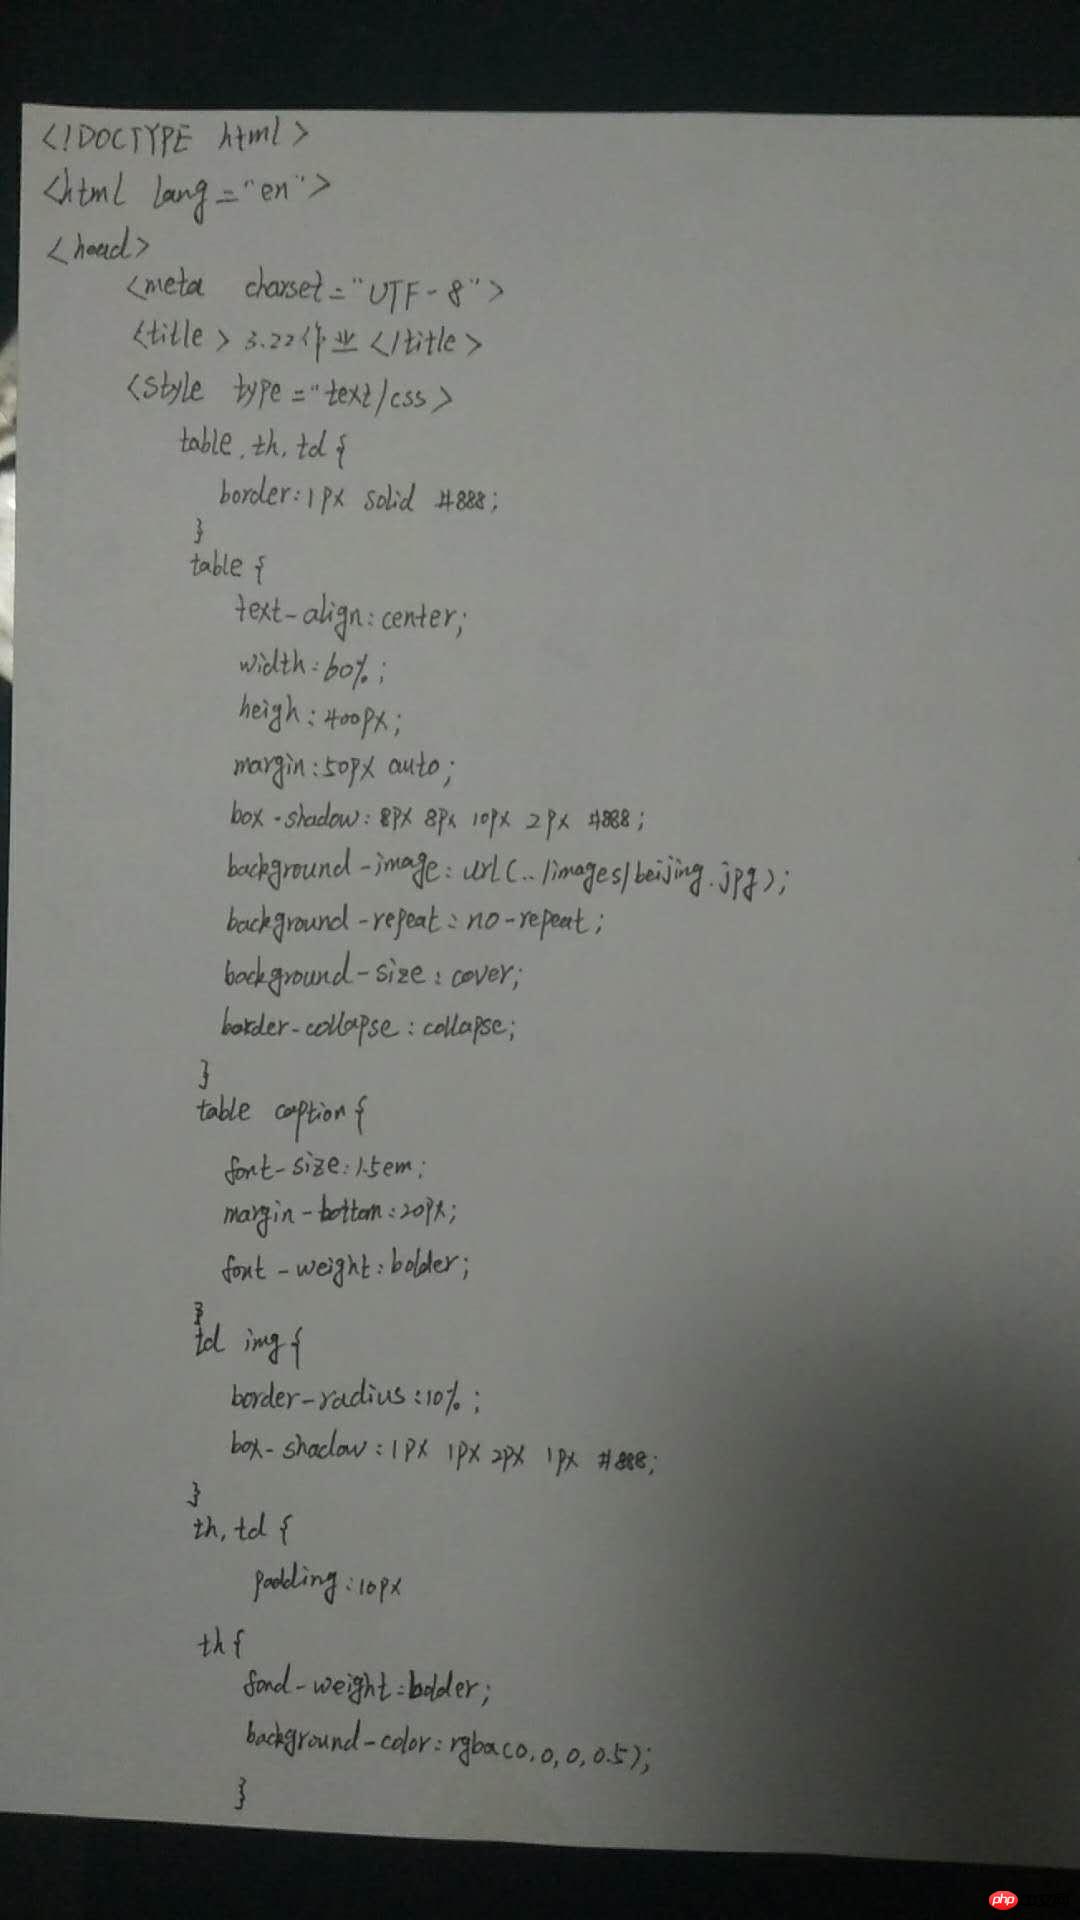 <!DOCTYPE html>
<html lang="en">
<head>
<meta charset="UTF-8">
<title>3.22作业</title>
<style type="text/css>
table,th,td{
border:1px solid #888;
}
table{
text-align:center;
width:60%;
heigh:400px;
margin:50px auto;
box-shadow:8px 8px 10px 2px #888;
background-image:url(../images/beijing.jpg);
background-repeat:no-repeat;
background-size:cover;
border-collapse:collapse;
}
table caption{
font-size:1.5em;
margin-bottom:20px;
font-weight:bolder;
}
td img{
border-radius:10%;
box-shadow:1px 1px 2px 1px #888;
}
th,td{
padding:10px
th{
fond-weight:bolder;
background-color:rgba(0,0,0,0.5);
}
php